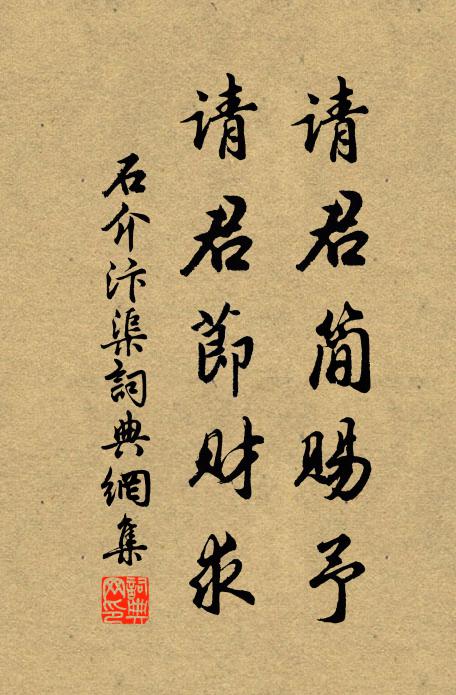 请君简赐予
请君節财求
石介汴渠詞典網集
詞典网印